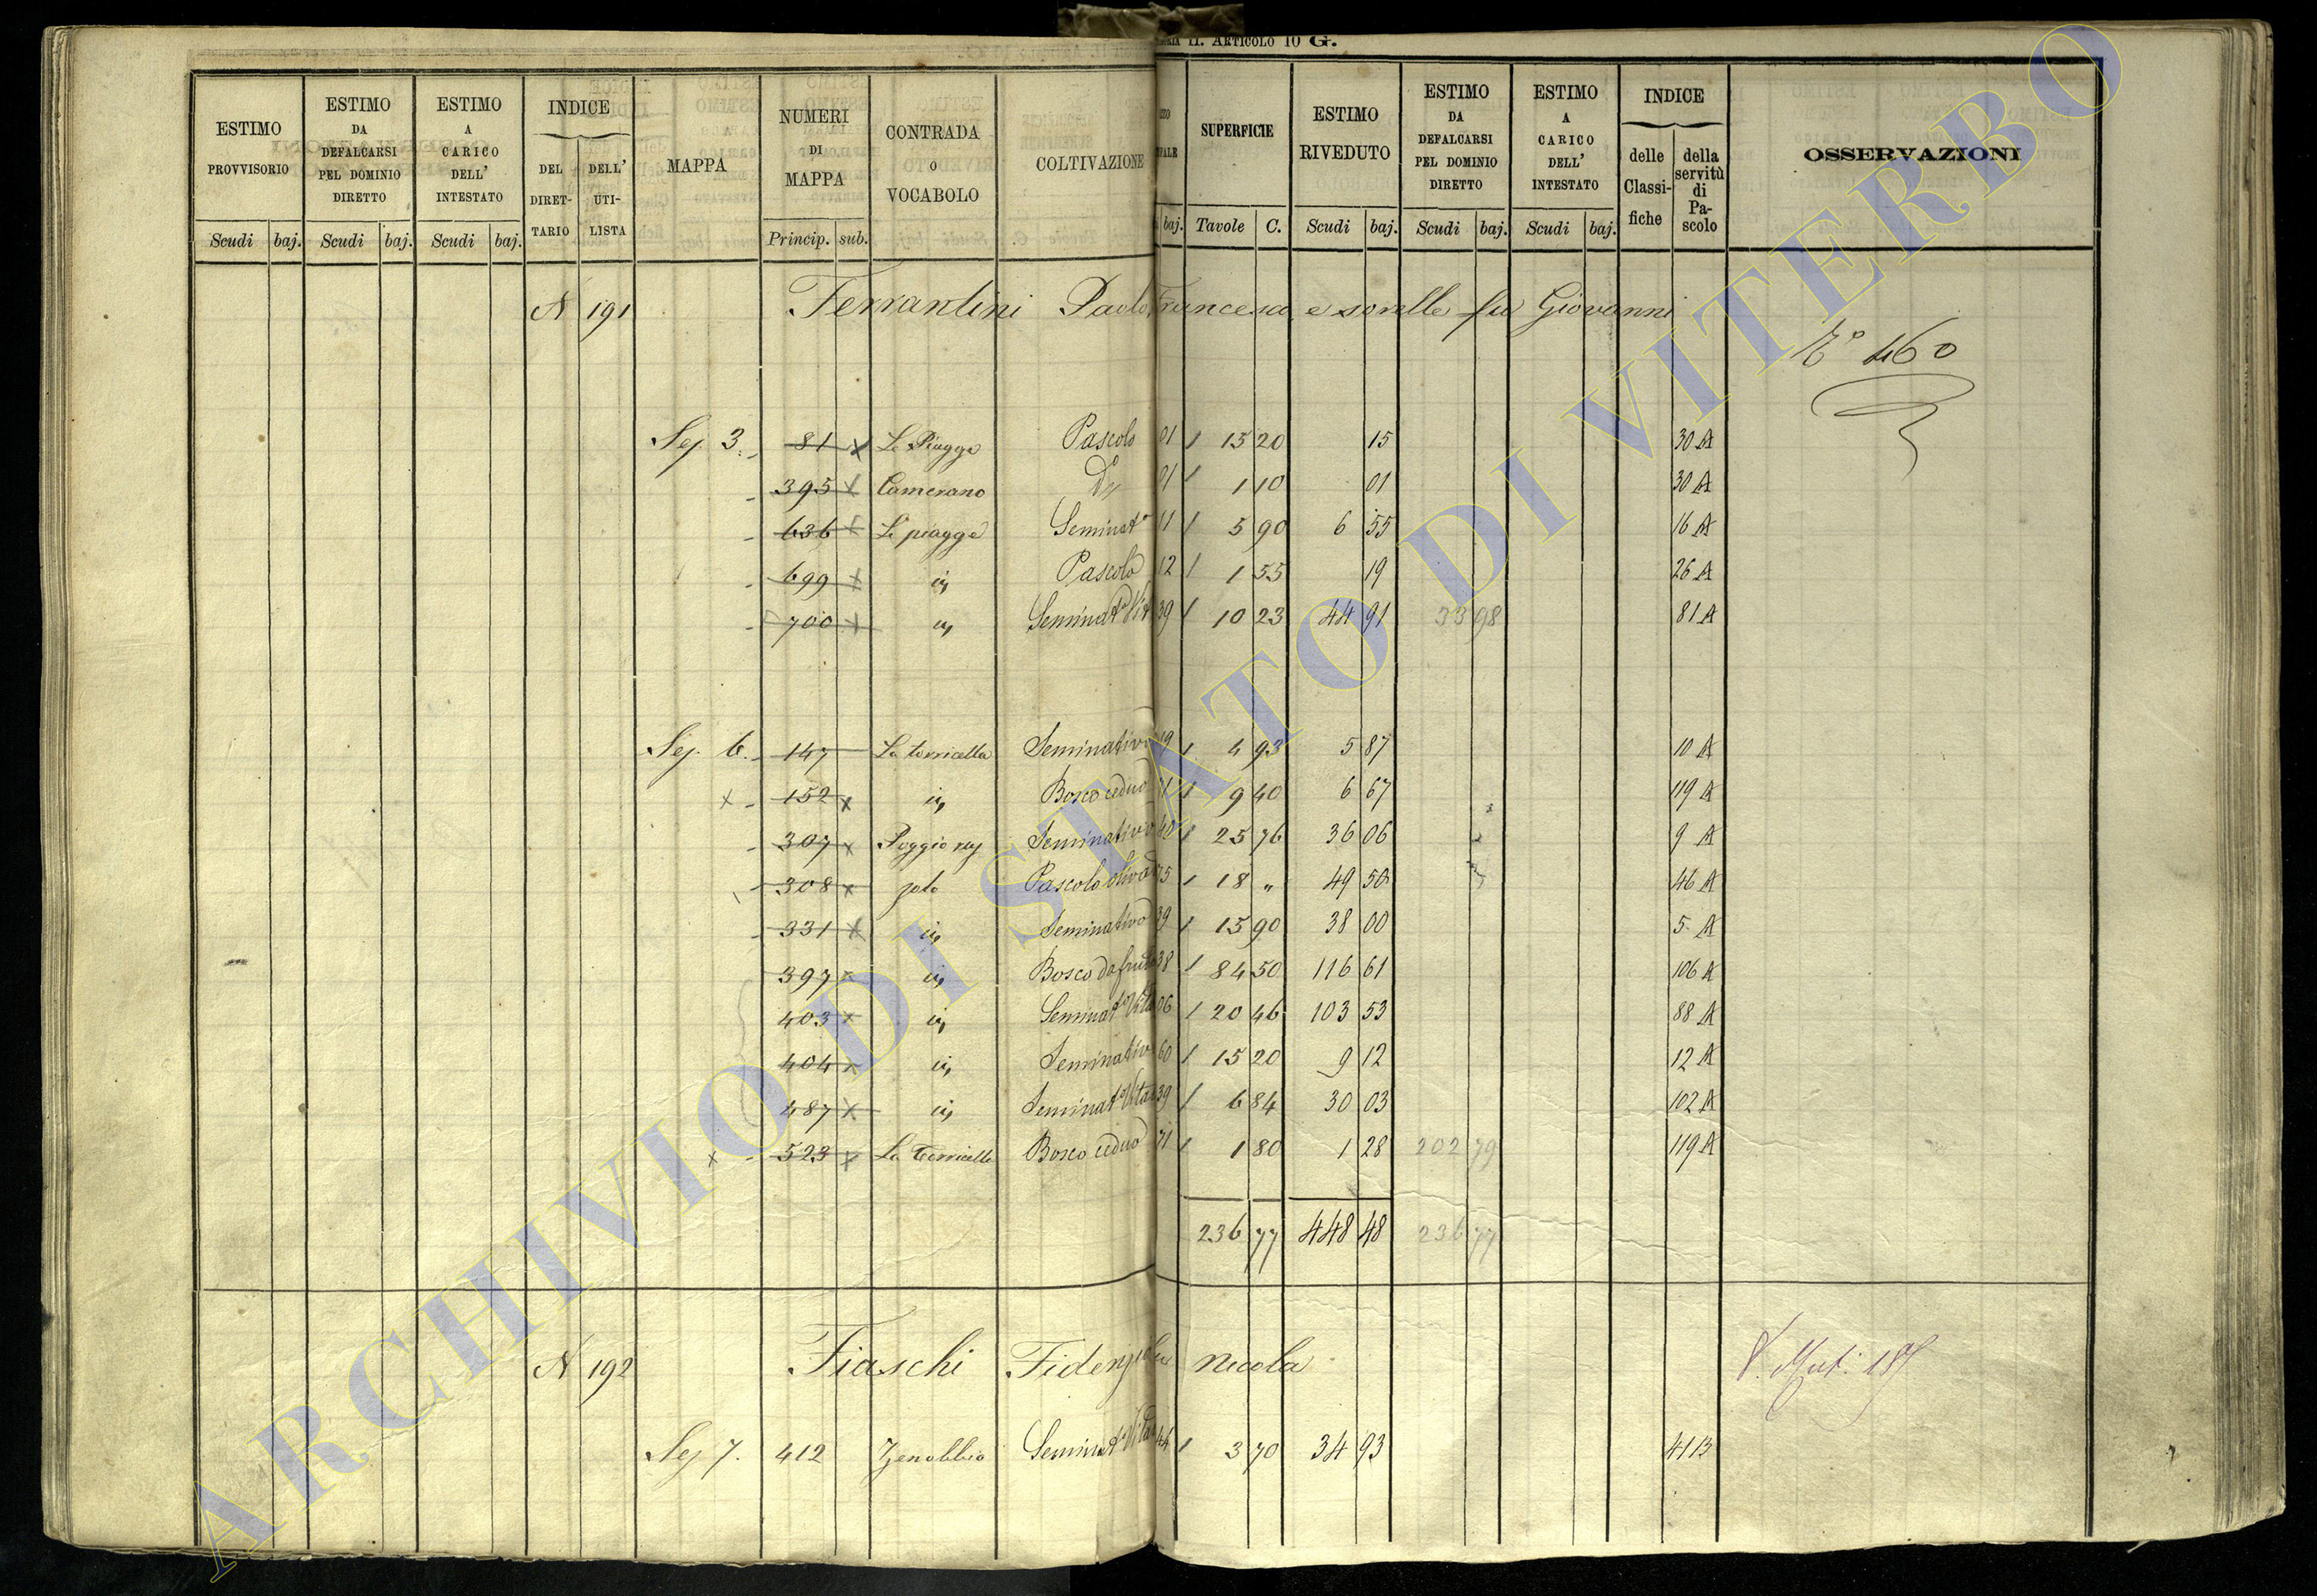 ARTICOLO 10 G.
ESTIMO PROVVISORIO | ESTIMO DA DEFALCARSI PEL DOMINIO DIRETTO | ESTIMO A CARICO DELL' INTESTATO | INDICE | MAPPA | NUMERI DI MAPPA | CONTRADA O VOCABOLO | COLTIVAZIONE | SUPERFICIE | ESTIMO RIVEDUTO | ESTIMO DA DEFALCARSI PEL DOMINIO DIRETTO | ESTIMO A CARICO DELL' INTESTATO | INDICE | OSSERVAZIONI
DEL DIRETTARIO | DELL' UTILISTA | delle Classifiche | della servitù di Pascolo
Scudi | baj. | Scudi | baj. | Scudi | baj. | Princip. | sub. | baj. | Tavole | C. | Scudi | baj. | Scudi | baj. | Scudi | baj.
N 191 Ferrantini Paolo, Francesca e sorelle fu Giovanni
460
Sez. 3. 81 x Le Piagge Pascolo 01 1 15 20 15 30 A
395 x Camerano Do 01 1 1 10 01 30 A
636 x Le piagge Seminato 11 1 5 90 6 55 16 A
699 x in Pascolo 12 1 1 55 19 26 A
700 x in Seminato Vit 39 1 10 23 44 91 33 98 81 A
Sez. 6. 147 La torricella Seminativo 19 1 4 93 5 87 10 A
x 152 x in Bosco ceduo 71 1 9 40 6 67 119 A
307 x Poggio Seminativo 40 1 25 76 36 06 9 A
308 x Pascolo olivato 75 1 18 „ 49 50 46 A
331 x in Seminativo 39 1 15 90 38 00 5 A
397 x in Bosco da frutto 38 1 84 50 116 61 106 A
403 x in Seminato Vita 06 1 20 46 103 53 88 A
404 x in Seminativo 60 1 15 20 9 12 12 A
487 x in Seminato Vitato 39 1 6 84 30 03 102 A
x 523 x La Torricella Bosco ceduo 71 1 1 80 1 28 202 79 119 A
236 77 448 48 236 77
N 192 Fiaschi Fidenzio fu Nicola
Sez 7. 412 Zenobbio Seminato Vitato 44 1 3 70 34 93 41 B
ARCHIVIO DI STATO DI VITERBO